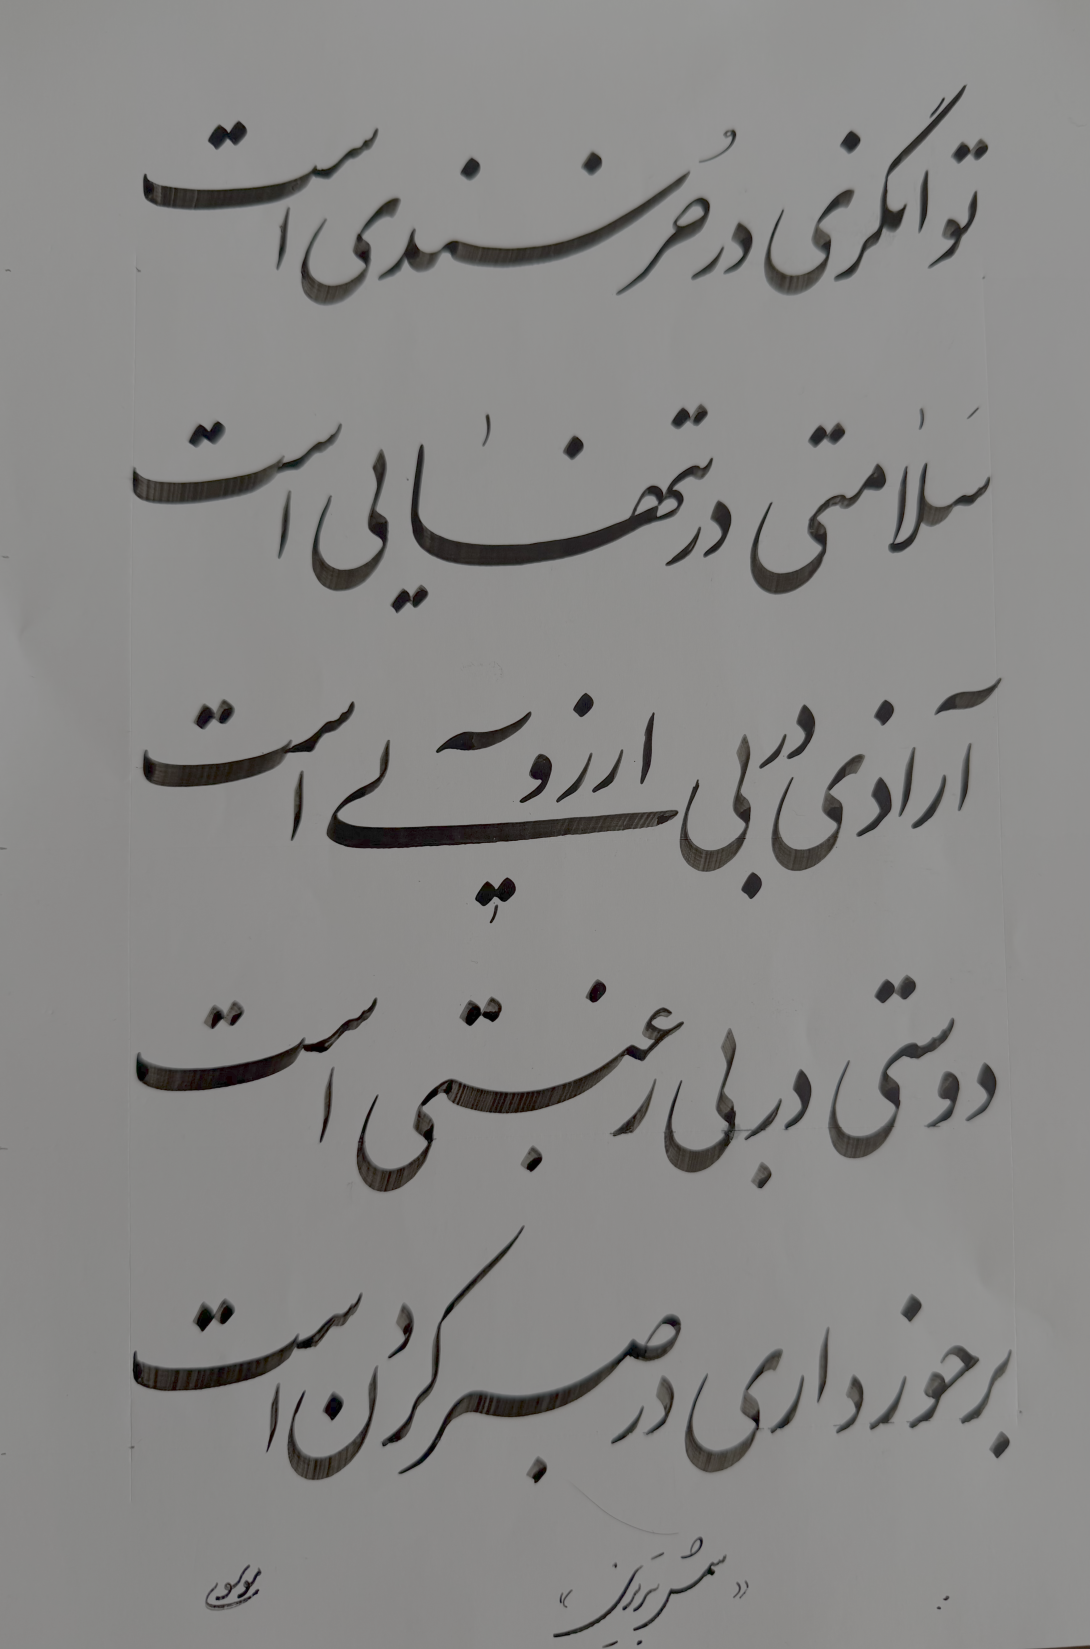 توانگری در خُرسندی است
سَلامتی در تنهایی است
آزادی در بی آرزویی است
دوستی در بی رغبتی است
برخورداری در صبر کردن است
«شمس تبریزی»